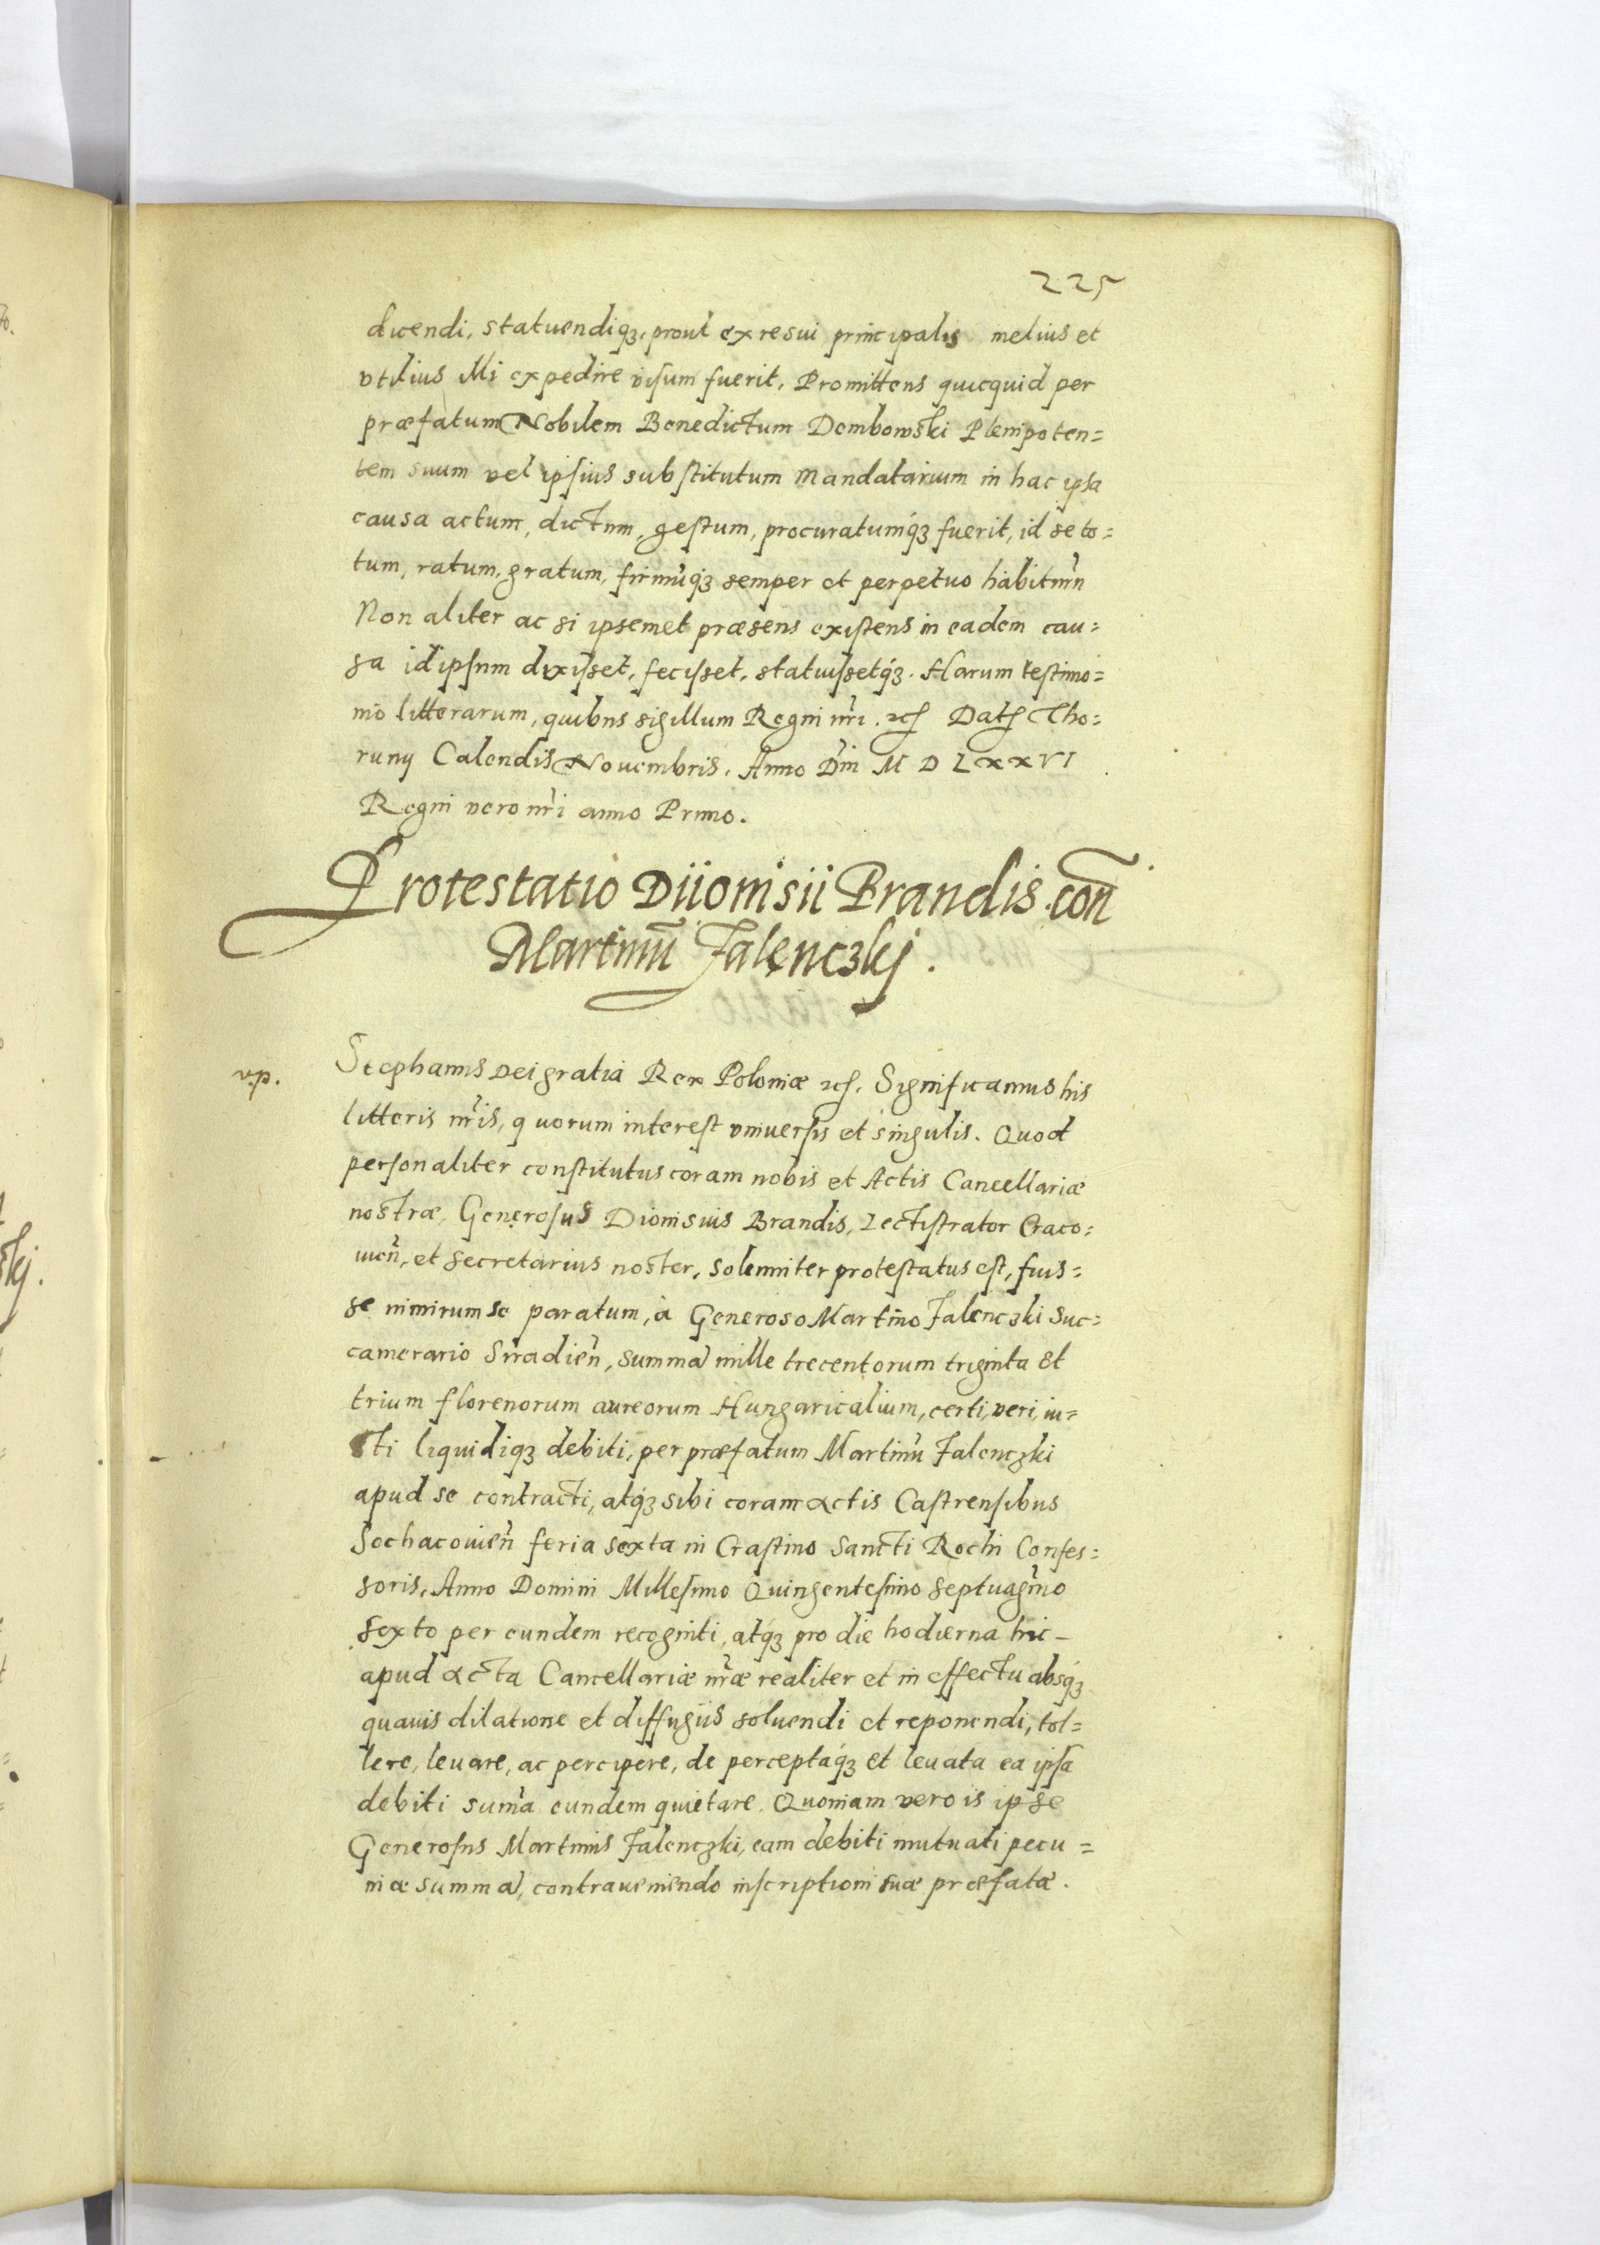 225
dicendi, statuendiqꝫ, prout ex re sui principalis melius et
vtilius illi expedire visum fuerit, Promittens quicquid per
præfatum Nobilem Benedictum Dembowski Plenipoten=
tem suum vel ipsius substitutum mandatarium in hac ipsa
causa actum, dictum, gestum, procuratumqꝫ fuerit, id se to=
tum, ratum, gratum, firmūqꝫ semper et perpetuo habitūm
Non aliter ac si ipsemet præsens existens in eadem cau=
sa id ipsum dixisset, fecisset, statuissetqꝫ. Harum testimo=
nio litterarum, quibus sigillum Regni nr̃i. etc Dat̃ Tho=
runÿ Calendis Nouembris. Anno Dñi M D L x x V I
Regni vero nr̃i anno Primo.
Protestatio Diionisii Brandis con̄
Martinū Jalenczkj.
vp.
Stephanus Dei gratia Rex Poloniæ etc. Significamus his
litteris nr̃is, quorum interest vniuersis et singulis. Quod
personaliter constitutus coram nobis et Actis Cancellariæ
nostræ, Generosus Dionisius Brandis, Lectistrator Craco=
uien̄, et Secretarius noster, solenniter protestatus est, fuis=
se nimirum se paratum, à Generoso Martino Jalenczki Suc=
camerario Siradien̄, summā mille trecentorum triginta et
trium florenorum aureorum Hungaricalium, certi, veri, iu=
sti liquidiqꝫ debiti, per præfatum Martinū Jalenczki
apud se contracti, atqꝫ sibi coram actis Castrensibus
Sochacouien̄ feria sexta in Crastino Sancti Rochi Confes=
soris, Anno Domini Millesimo Quingentesimo septuagīmo
sexto per eundem recogniti, atqꝫ pro die hodierna hic
apud acta Cancellariæ nr̃æ realiter et in effectu absqꝫ
quauis dilatione et diffugiis soluendi et reponendi, tol=
lere, leuare, ac percipere, de perceptaqꝫ et leuata ea ipsa
debiti sum̃a eundem quietare. Quoniam vero is ipse
Generosus Martinus Jalenczki, eam debiti mutuati pecu=
niæ summā, contraueniendo inscriptioni suæ præfatæ.